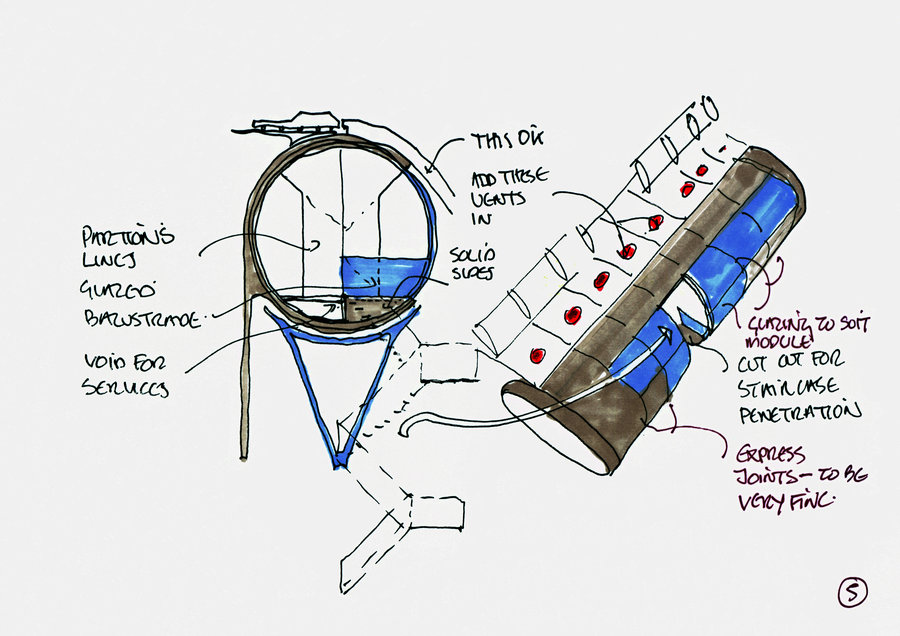 THIS OK
ADD THESE
VENTS
IN
PARTION'S
LINES
GLAZED
BALUSTRADE.
VOID FOR
SERVICES
SOLID
SIDES
GLAZING TO SUIT
MODULE
CUT OUT FOR
STAIRCASE
PENETRATION
EXPRESS
JOINTS - TO BE
VERY FINE.
5